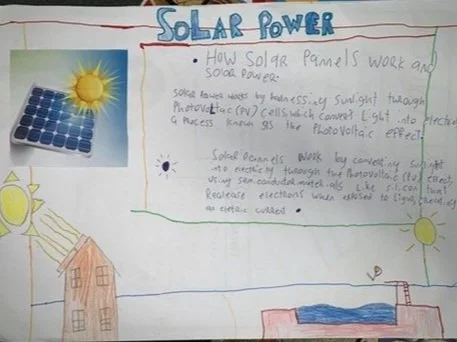 SOLAR POWER
• HOW SOLAR PANNELS WORK AND
SOLAR POWER.
SOLAR POWER WORKS by harnessing Sunlight through
Photovoltac (PV) Cells which convert Light into electri
a process known as the Photovoltaic effect.
Solar Pannels work by converting sunlight
into electricity through the Photovoltaic (PV) effect,
using semiconductor materials like silicon that
Realease electrons when exposed to light, creating
an eletric current •